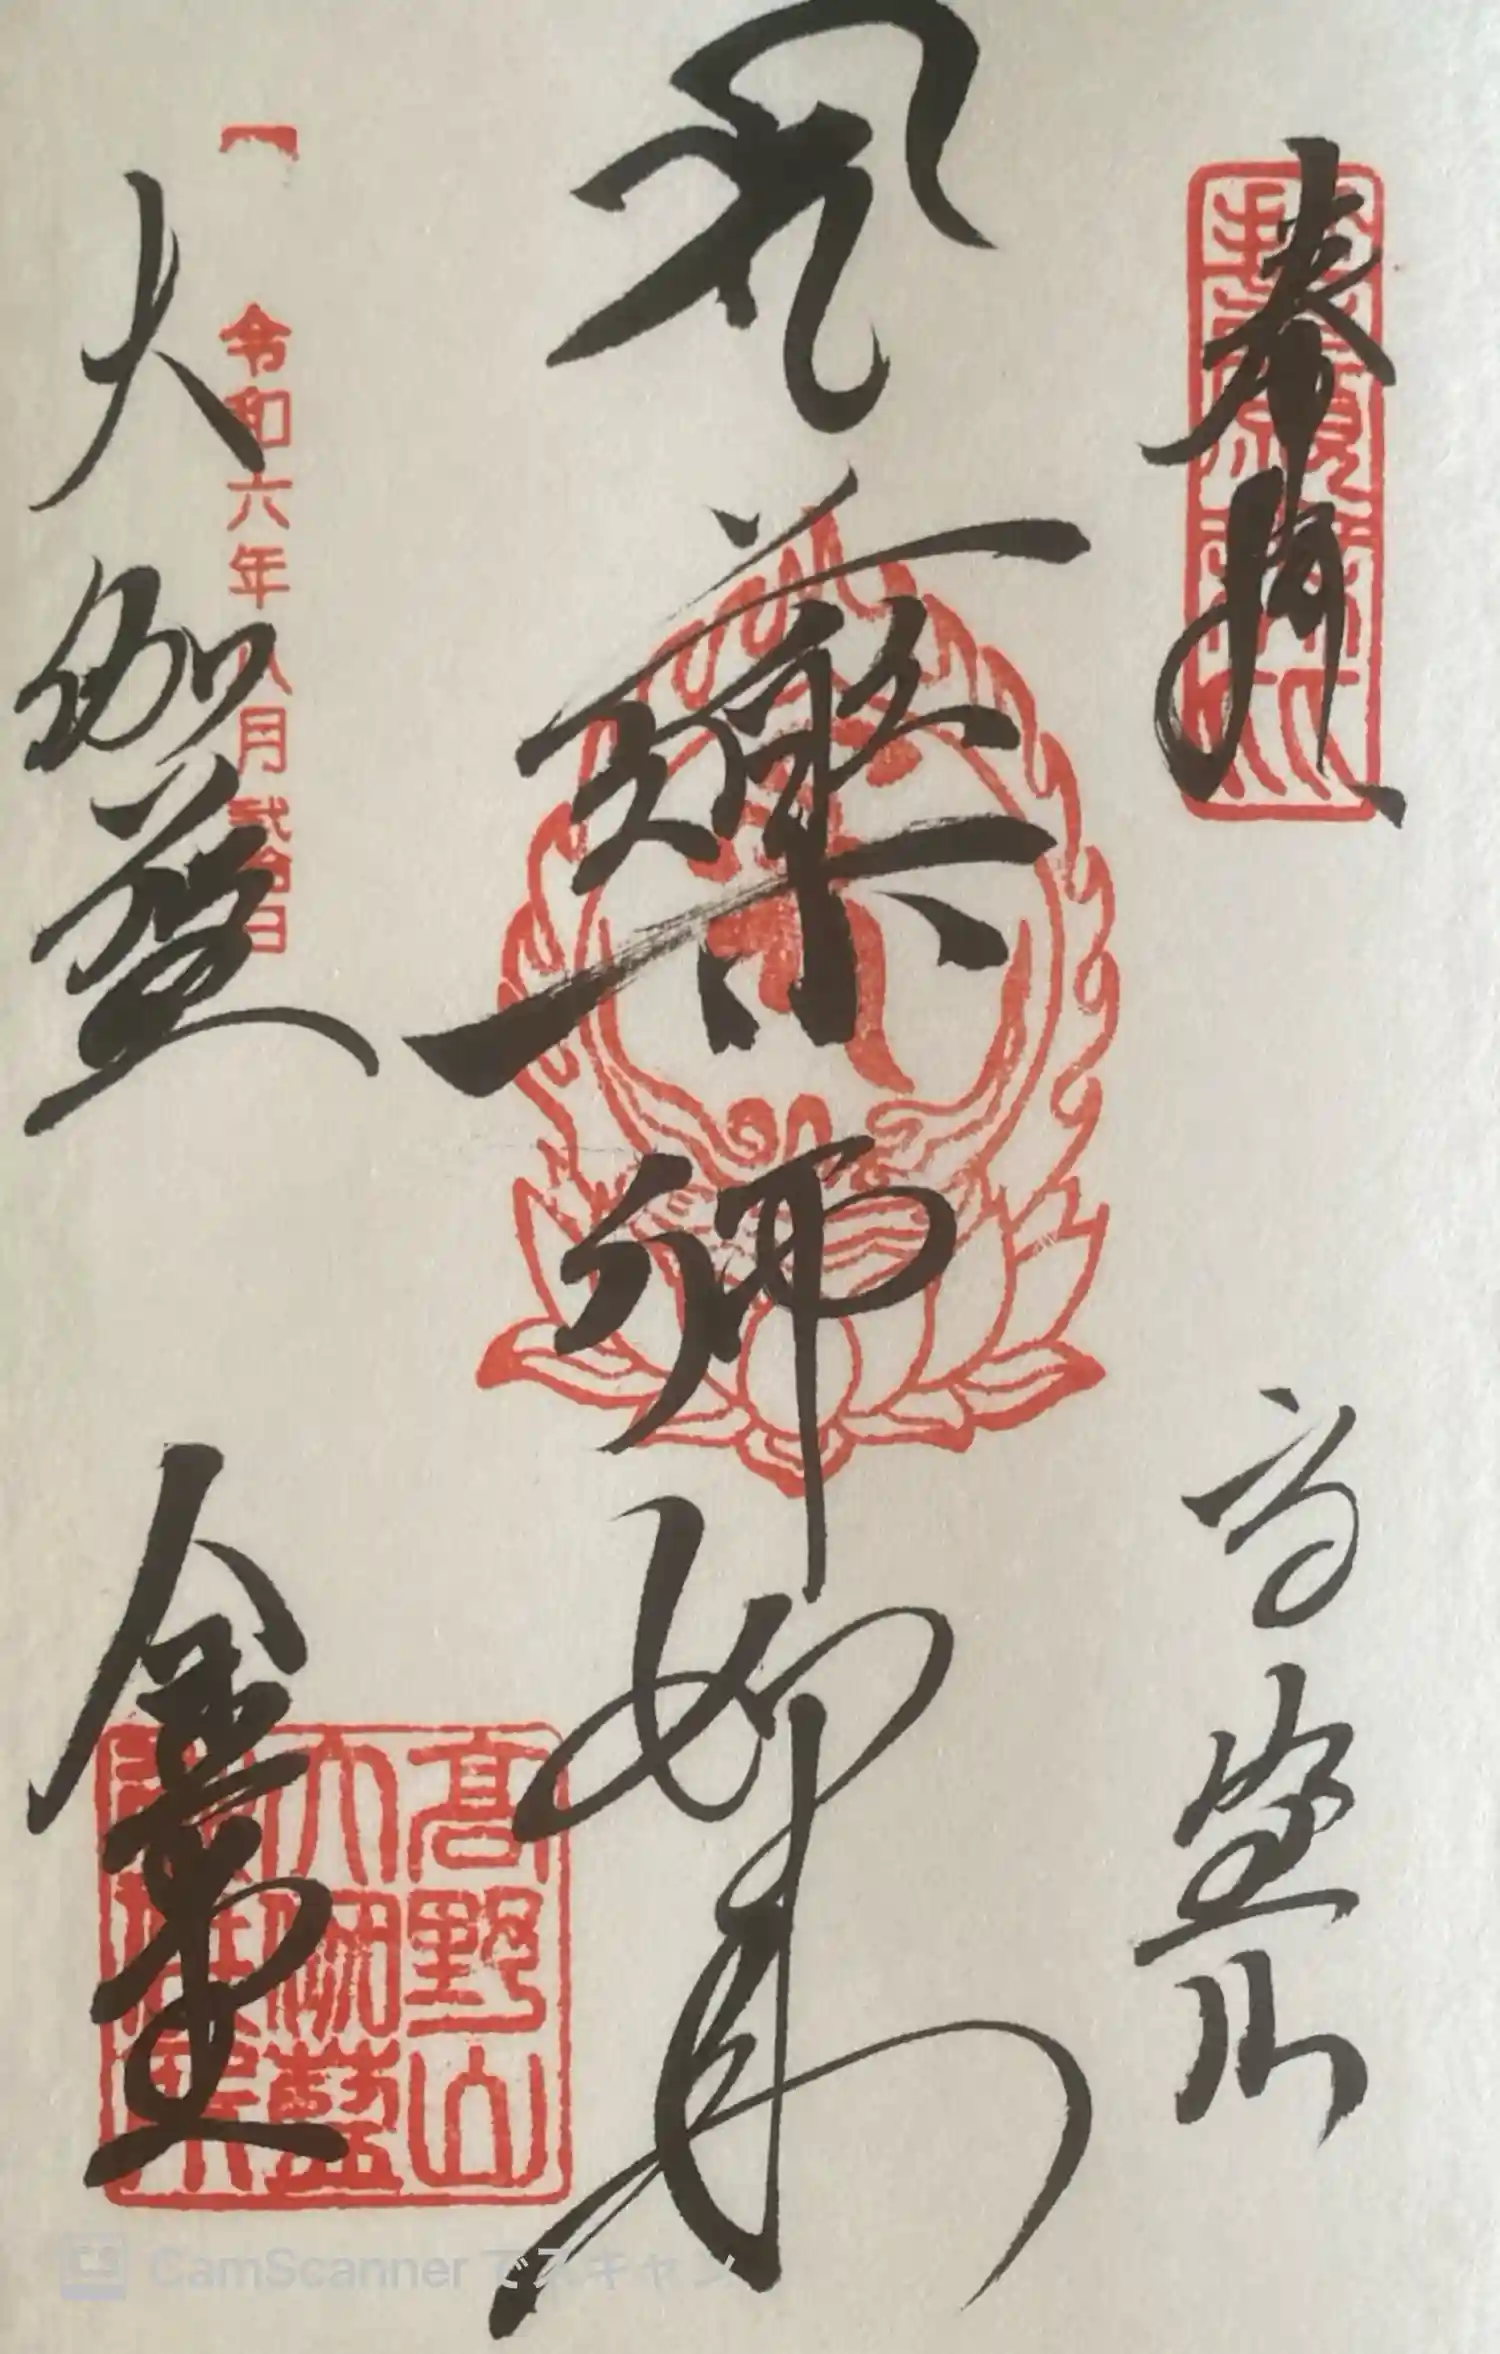 奉拝
高野山
薬師如来
大伽藍
金堂
令和六年八月弐拾日
高野山
大伽藍
CamScanner でスキャン